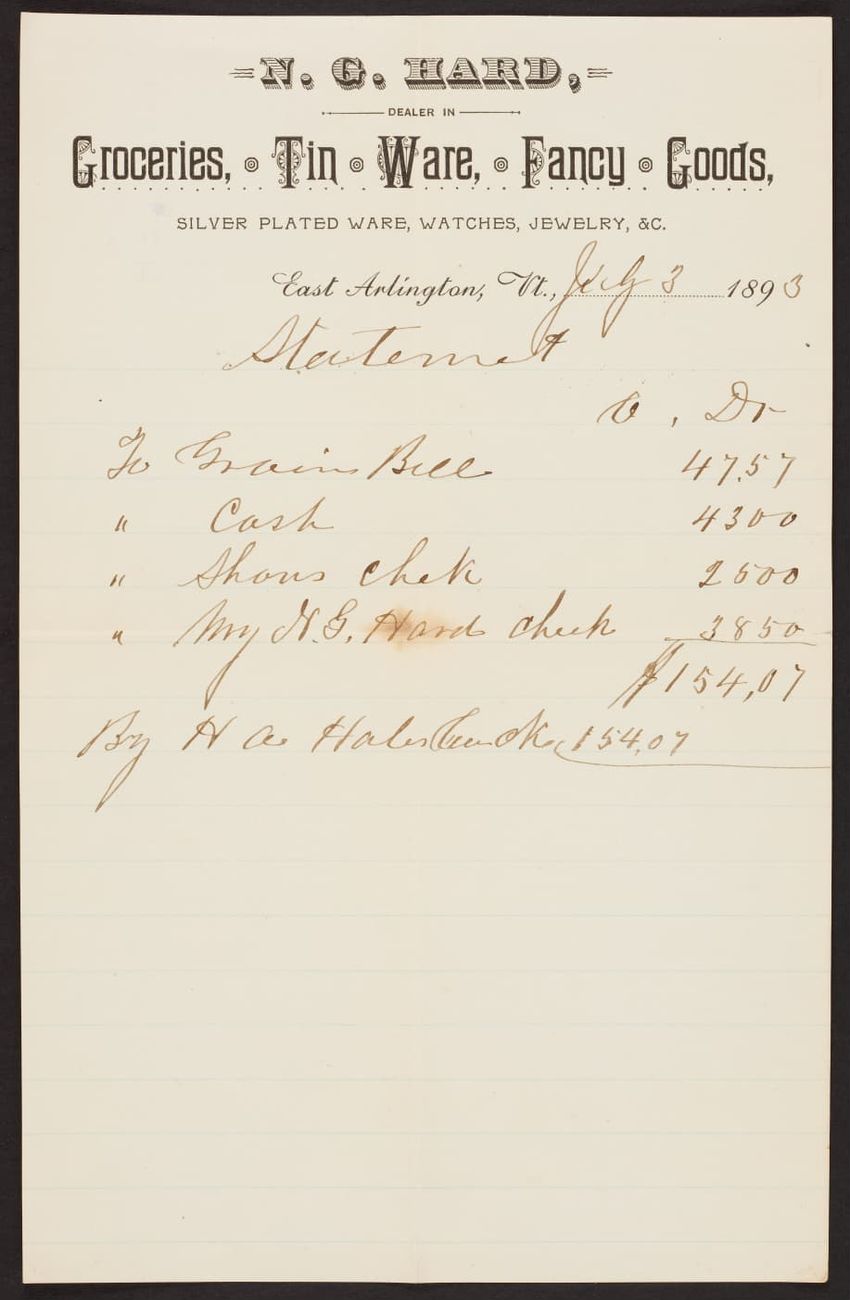 N. G. HARD,
DEALER IN
Groceries, Tin Ware, Fancy Goods,
SILVER PLATED WARE, WATCHES, JEWELRY, &C.
East Arlington, Vt., July 3 1893
Statemet
Dr
To Grain Bill 47.57
" Cash 4300
" Shous chek 2500
" My N.G. Hard chech 3850
$154,07
By H a 154,07